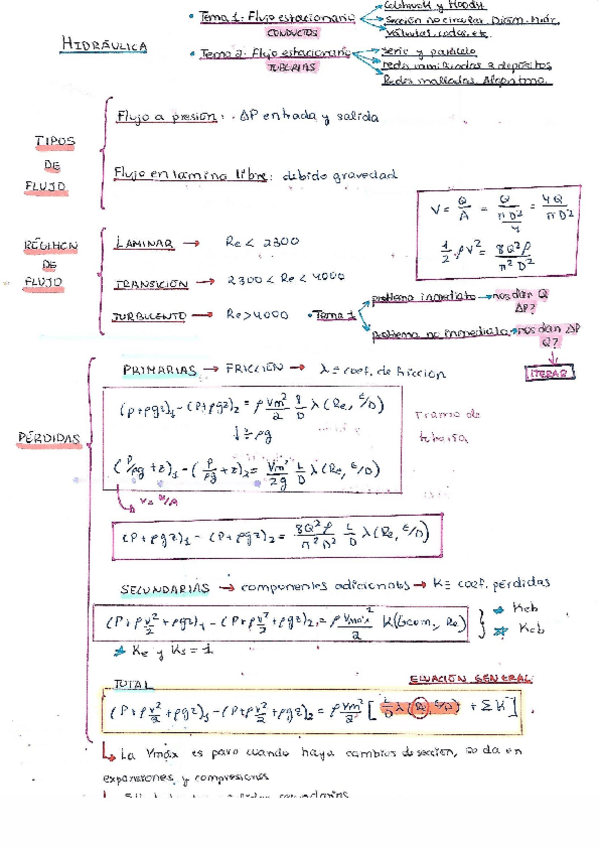 Colebrook y Moody
• Tema 1: Flujo estacionario → Sección no circular. Diám. Hidr.
CONDUCTOS válvulas, codos, etc.
HIDRÁULICA
• Tema 2: Flujo estacionario → serie y paralelo
TUBERÍAS redes ramificadas 3 depósitos
Redes malladas. Algoritmo.
TIPOS DE FLUJO
Flujo a presión: ΔP entrada y salida
Flujo en lámina libre: debido gravedad
V = Q/A = Q/(πD²/4) = 4Q/πD²
1/2 ρV² = 8Q²ρ/π²D²
RÉGIMEN DE FLUJO
LAMINAR → Re < 2300
TRANSICIÓN → 2300 < Re < 4000
TURBULENTO → Re > 4000
• Tema 1
problema inmediato → nos dan Q
ΔP?
problema no inmediato → nos dan ΔP
Q?
ITERAR
PÉRDIDAS
PRIMARIAS → FRICCIÓN → λ = coef. de fricción
(P+ρgz)₁ - (P+ρgz)₂ = ρ Vm²/2 λ(Re, ε/D)
Tramo de
tubería
÷ρg
(P/ρg + z)₁ - (P/ρg + z)₂ = Vm²/2g L/D λ(Re, ε/D)
(P+ρgz)₁ - (P+ρgz)₂ = 8Q²ρ/π²D² L/D λ(Re, ε/D)
SECUNDARIAS → componentes adicionales → K = coef. pérdidas
(P+ρ v²/2 + ρgz)₁ - (P+ρ v²/2 + ρgz)₂ = ρ Vmáx²/2 K(Geom., Re)
★ Ke y Ks = 1
TOTAL
ECUACIÓN GENERAL
(P+ρ v²/2 + ρgz)₁ - (P+ρ v²/2 + ρgz)₂ = ρ Vm²/2 [L/D λ(Re, ε/D) + ΣK]
↳ La Vmáx es para cuando haya cambios de sección, se da en
expansiones y compresiones